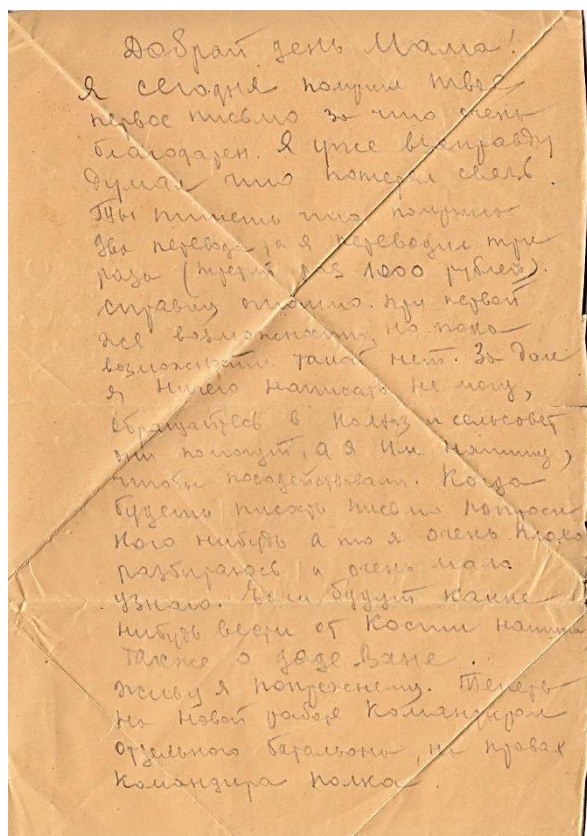 Добрай день Мама!
Я сегодня получил твое
первое письмо за что очень
благодарен. Я уже взаправду
думал что потерял связь
Ты пишешь что получила
два перевода, а я переводил три
раза (третий раз 1000 рублей).
справку вышлю при первой
же возможности, но пока
возможности такой нет. За дом
я ничего написать не могу,
обращайтесь в колхоз и сельсовет
они помогут, а я им напишу,
чтобы посодействовали. Когда
будешь писать письмо попроси
кого нибудь а то я очень плохо
разбираюсь и очень мало
узнаю. Если будут какие
нибудь вести от Кости напиши
также о дяде Ване.
живу я попрежнему. Теперь
на новой работе командиром
отдельного батальона, на правах
командира полка.